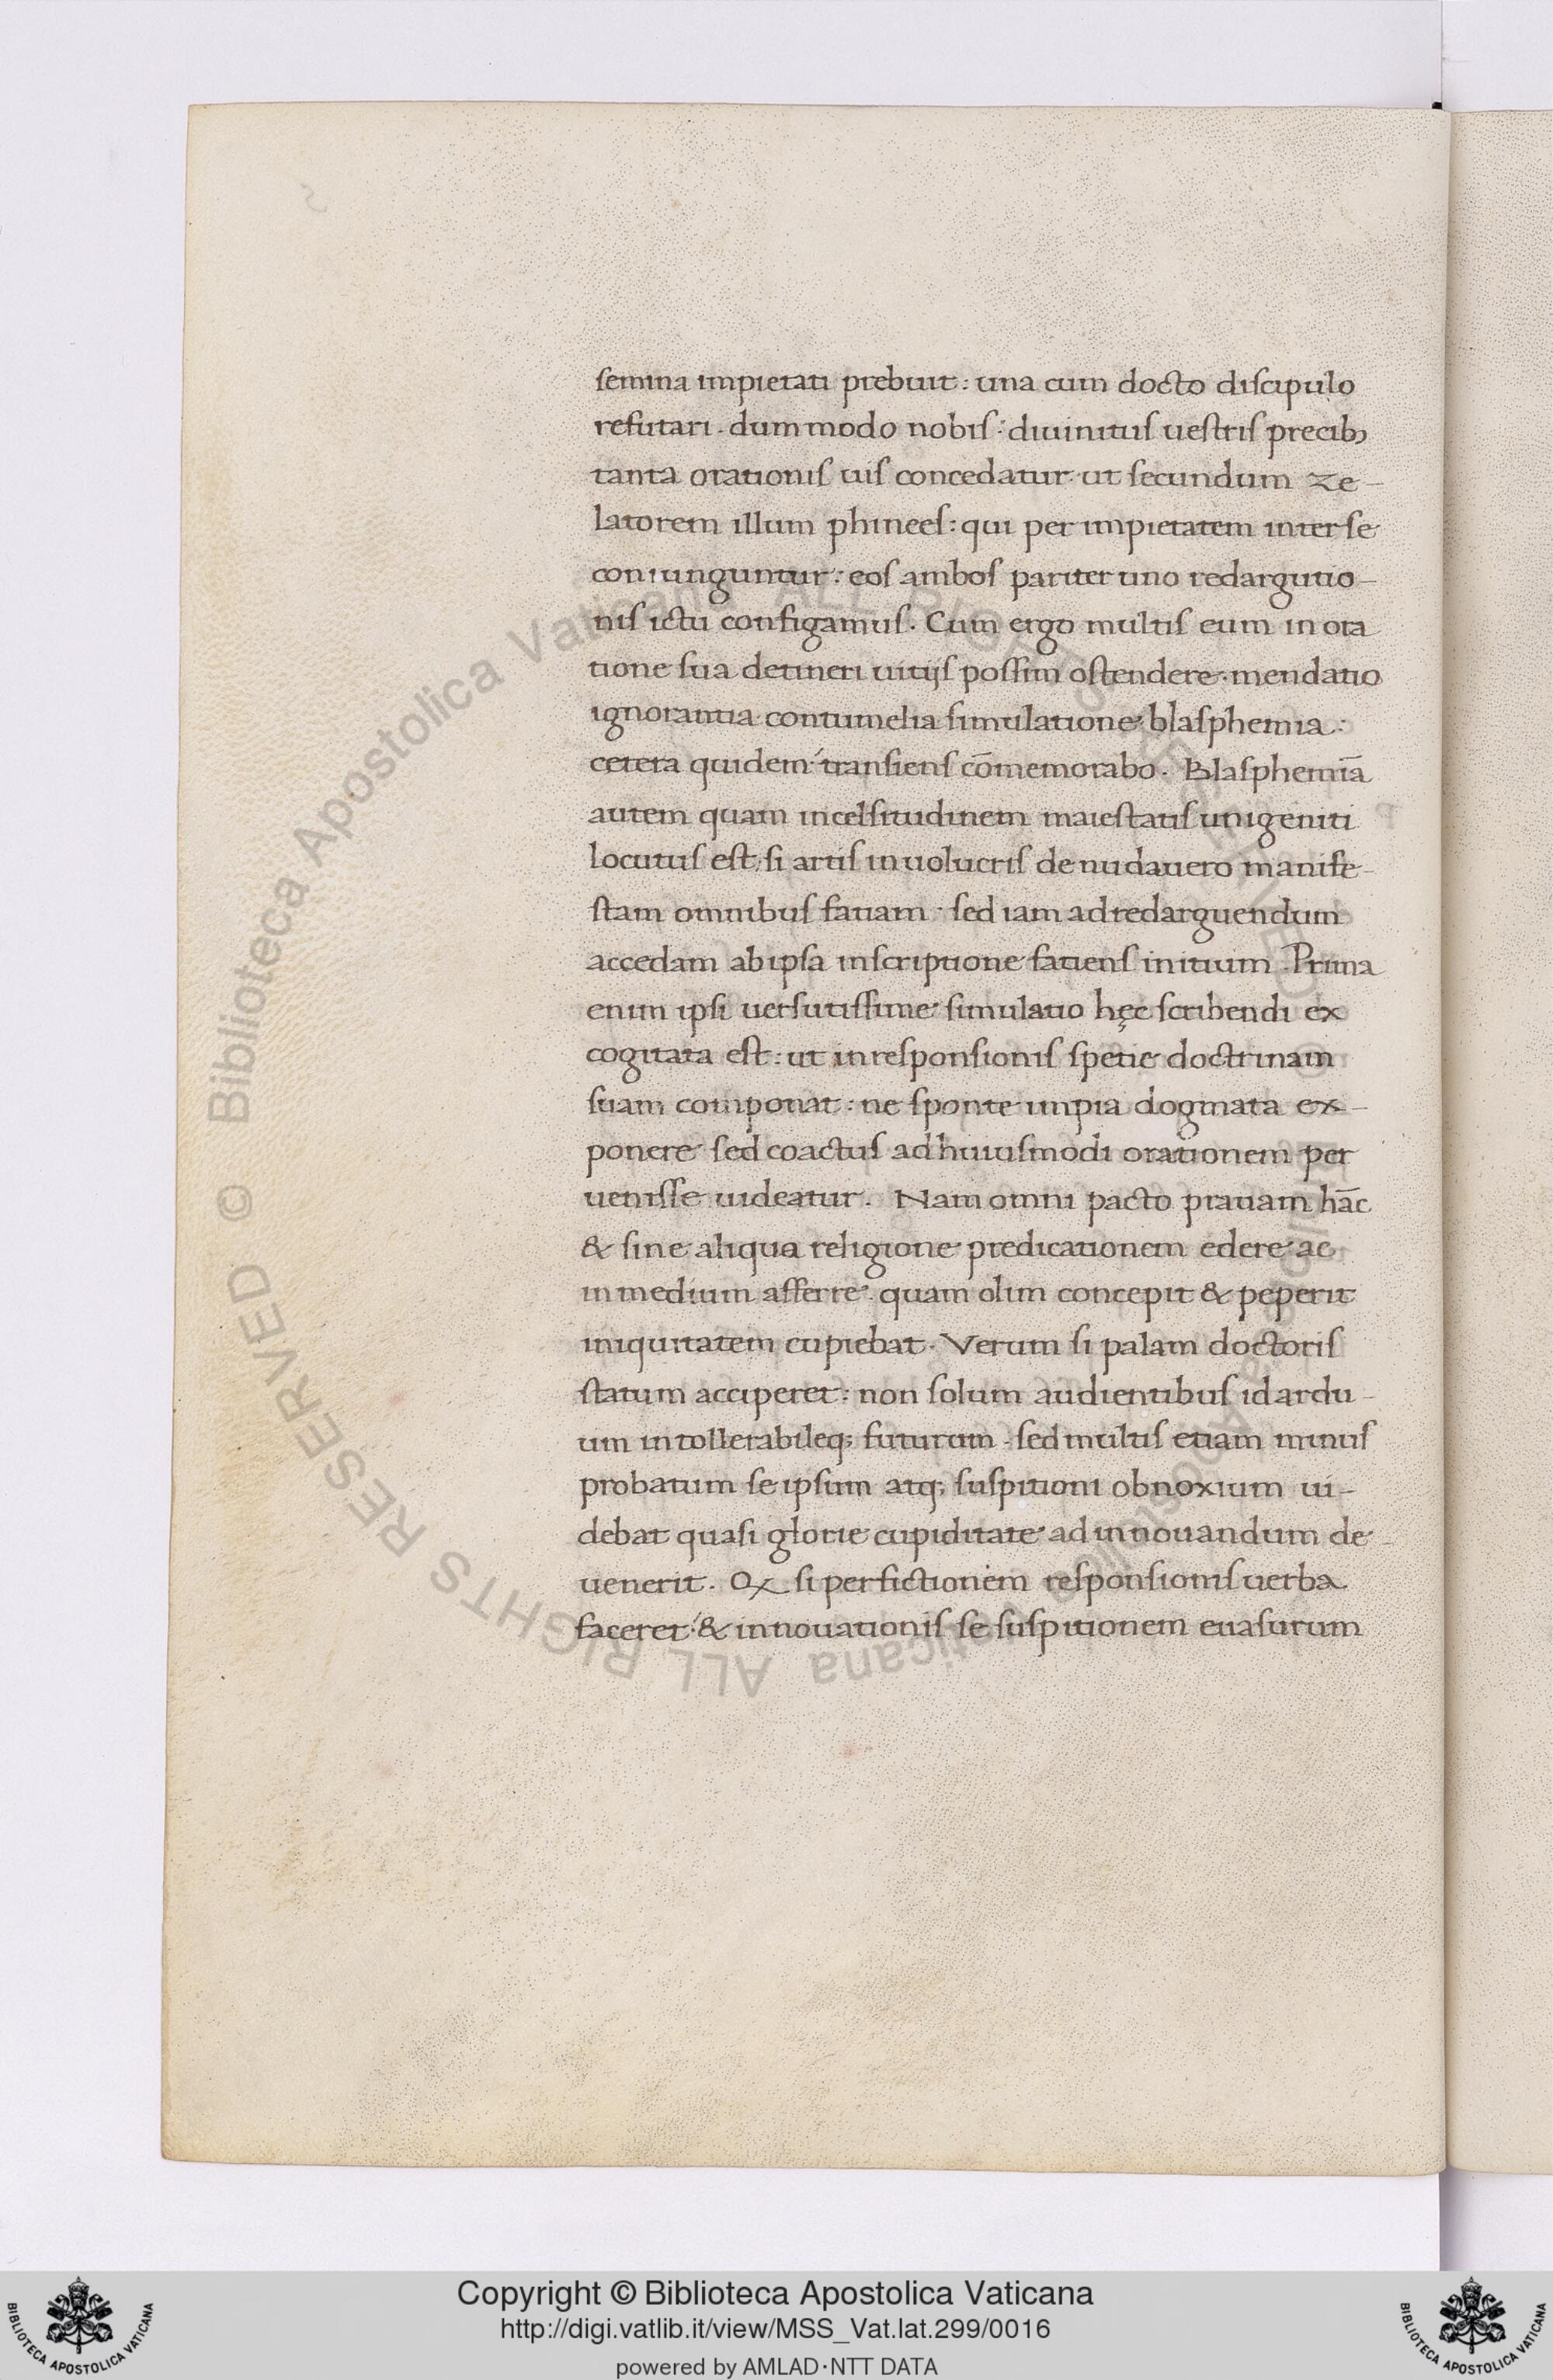 semina impietati prebuit: una cum docto discipulo
refutari. dummodo nobis: diuinitus uestris precibꝫ
tanta orationis uis concedatur. ut secundum ze-
latorem illum phinees: qui per impietatem inter se
coniunguntur: eos ambos pariter uno redargutio-
nis ictu configamus. Cum ergo multis eum in ora
tione sua detineri uitijs possim ostendere. mendatio
ignorantia contumelia simulatione blasphemia:
cetera quidem transiens cōmemorabo. Blasphemiā
autem quam in celsitudinem maiestatis unigeniti
locutus est, si artis inuolucris denudauero manife-
stam omnibus fatiam. sed iam ad redarguendum
accedam ab ipsa inscriptione fatiens initium. Prima
enim ipsi uersutissime simulatio hęc scribendi ex
cogitata est: ut in responsionis spetie doctrinam
suam componat: ne sponte impia dogmata ex-
ponere sed coactus ad huiusmodi orationem per
uenisse uideatur. Nam omni pacto prauam hāc
& sine aliqua religione predicationem edere ac
in medium afferre. quam olim concepit & peperit
iniquitatem cupiebat. Verum si palam doctoris
statum acciperet: non solum audientibus id ardu-
um intollerabileq; futurum. sed multis etiam minus
probatum se ipsum atq; suspitioni obnoxium ui-
debat quasi glorie cupiditate ad innouandum de-
uenerit. Qͅ si per fictionem responsionis uerba
faceret & innouationis se suspitionem euasurum
Biblioteca Apostolica Vaticana ALL RIGHTS RESERVED ©
Biblioteca Apostolica Vaticana ALL RIGHTS RESERVED ©
Copyright © Biblioteca Apostolica Vaticana
http://digi.vatlib.it/view/MSS_Vat.lat.299/0016
powered by AMLAD·NTT DATA
BIBLIOTECA APOSTOLICA VATICANA
BIBLIOTECA APOSTOLICA VATICANA